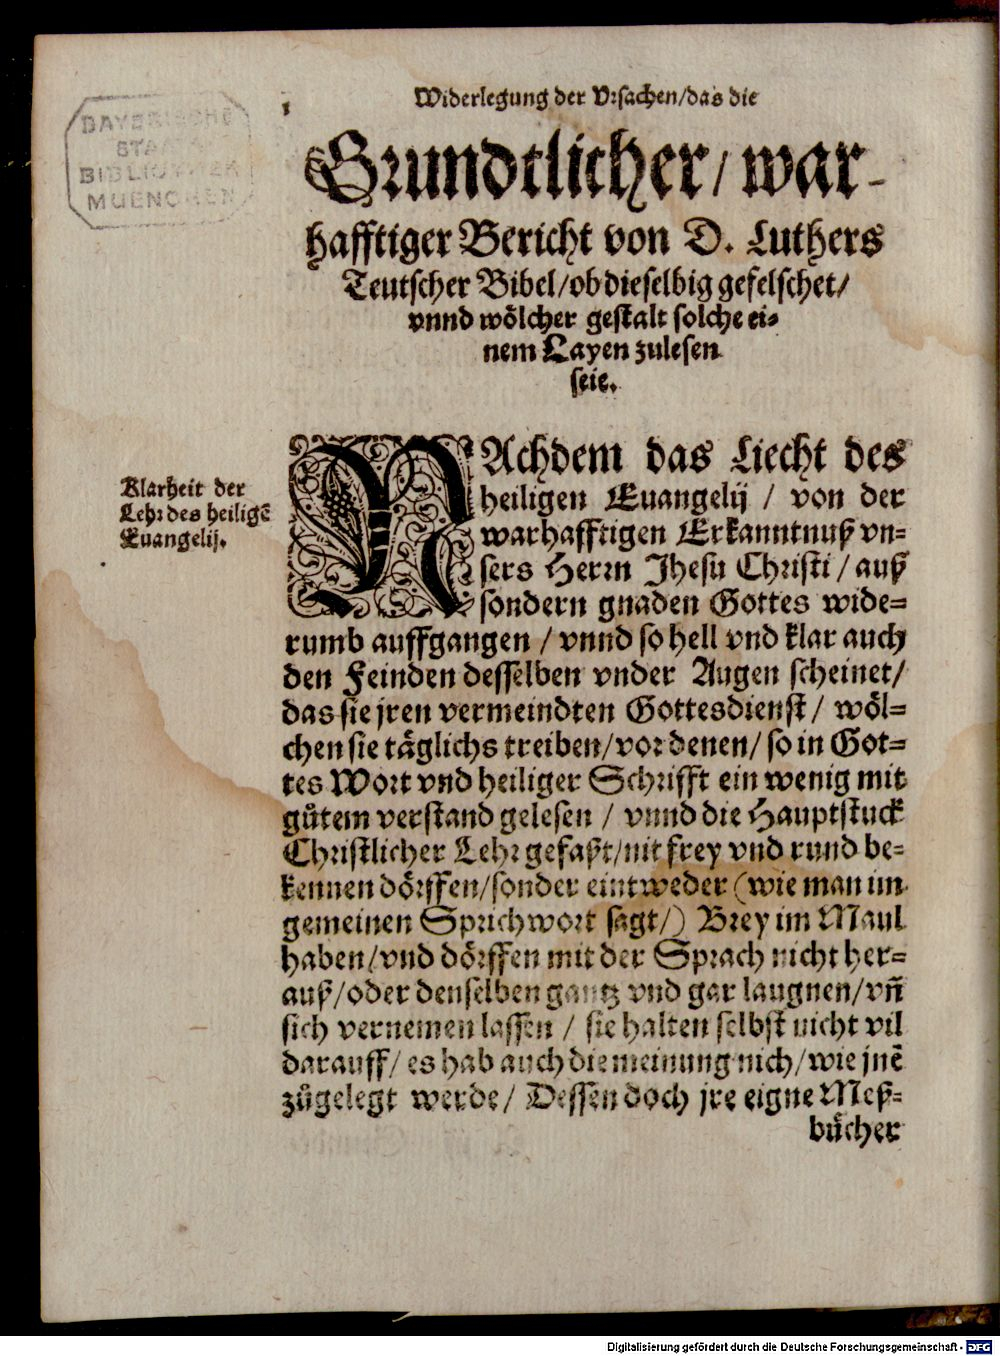 BAYERISCHE
STAATS-
BIBLIOTHEK
MUENCHEN
1
Widerlegung der Vrsachen/das die
Grundtlicher/ war-
hafftiger Bericht von D. Luthers
Teutscher Bibel/ob dieselbig gefelschet/
vnnd wölcher gestalt solche ei-
nem Layen zulesen
seie.
Klarheit der
Lehr des heiligē
Euangelij.
NAchdem das Liecht des
heiligen Euangelij / von der
warhafftigen Erkanntnuß vn-
sers Herrn Jhesu Christi / auß
sondern gnaden Gottes wide-
rumb auffgangen / vnnd so hell vnd klar auch
den Feinden desselben vnder Augen scheinet/
das sie jren vermeindten Gottesdienst / wöl-
chen sie täglichs treiben/vor denen/ so in Got-
tes Wort vnd heiliger Schrifft ein wenig mit
gůtem verstand gelesen / vnnd die Hauptstuck
Christlicher Lehr gefaßt/nit frey vnd rund be-
kennen dörffen/sonder eintweder (wie man im
gemeinen Sprichwort sagt/) Brey im Maul
haben/vnd dörffen mit der Sprach nicht her-
auß/oder denselben gantz vnd gar laugnen/vñ
sich vernemen lassen / sie halten selbst nicht vil
darauff/ es hab auch die meinung nich/wie jnē
zůgelegt werde/ Dessen doch jre eigne Meß-
bücher
Digitalisierung gefördert durch die Deutsche Forschungsgemeinschaft - DFG